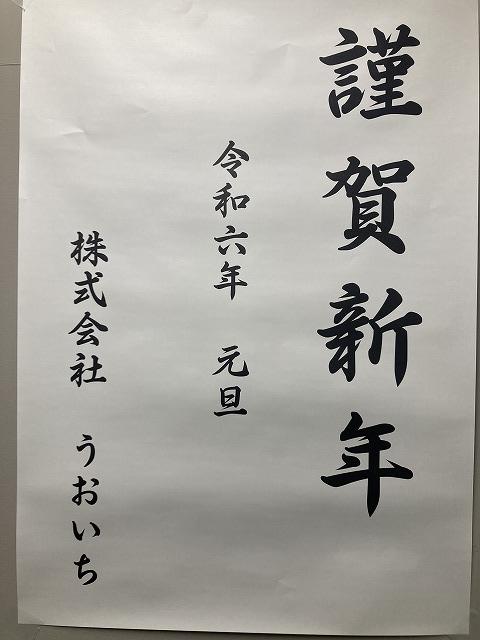 謹賀新年
令和六年　元旦
株式会社　うおいち